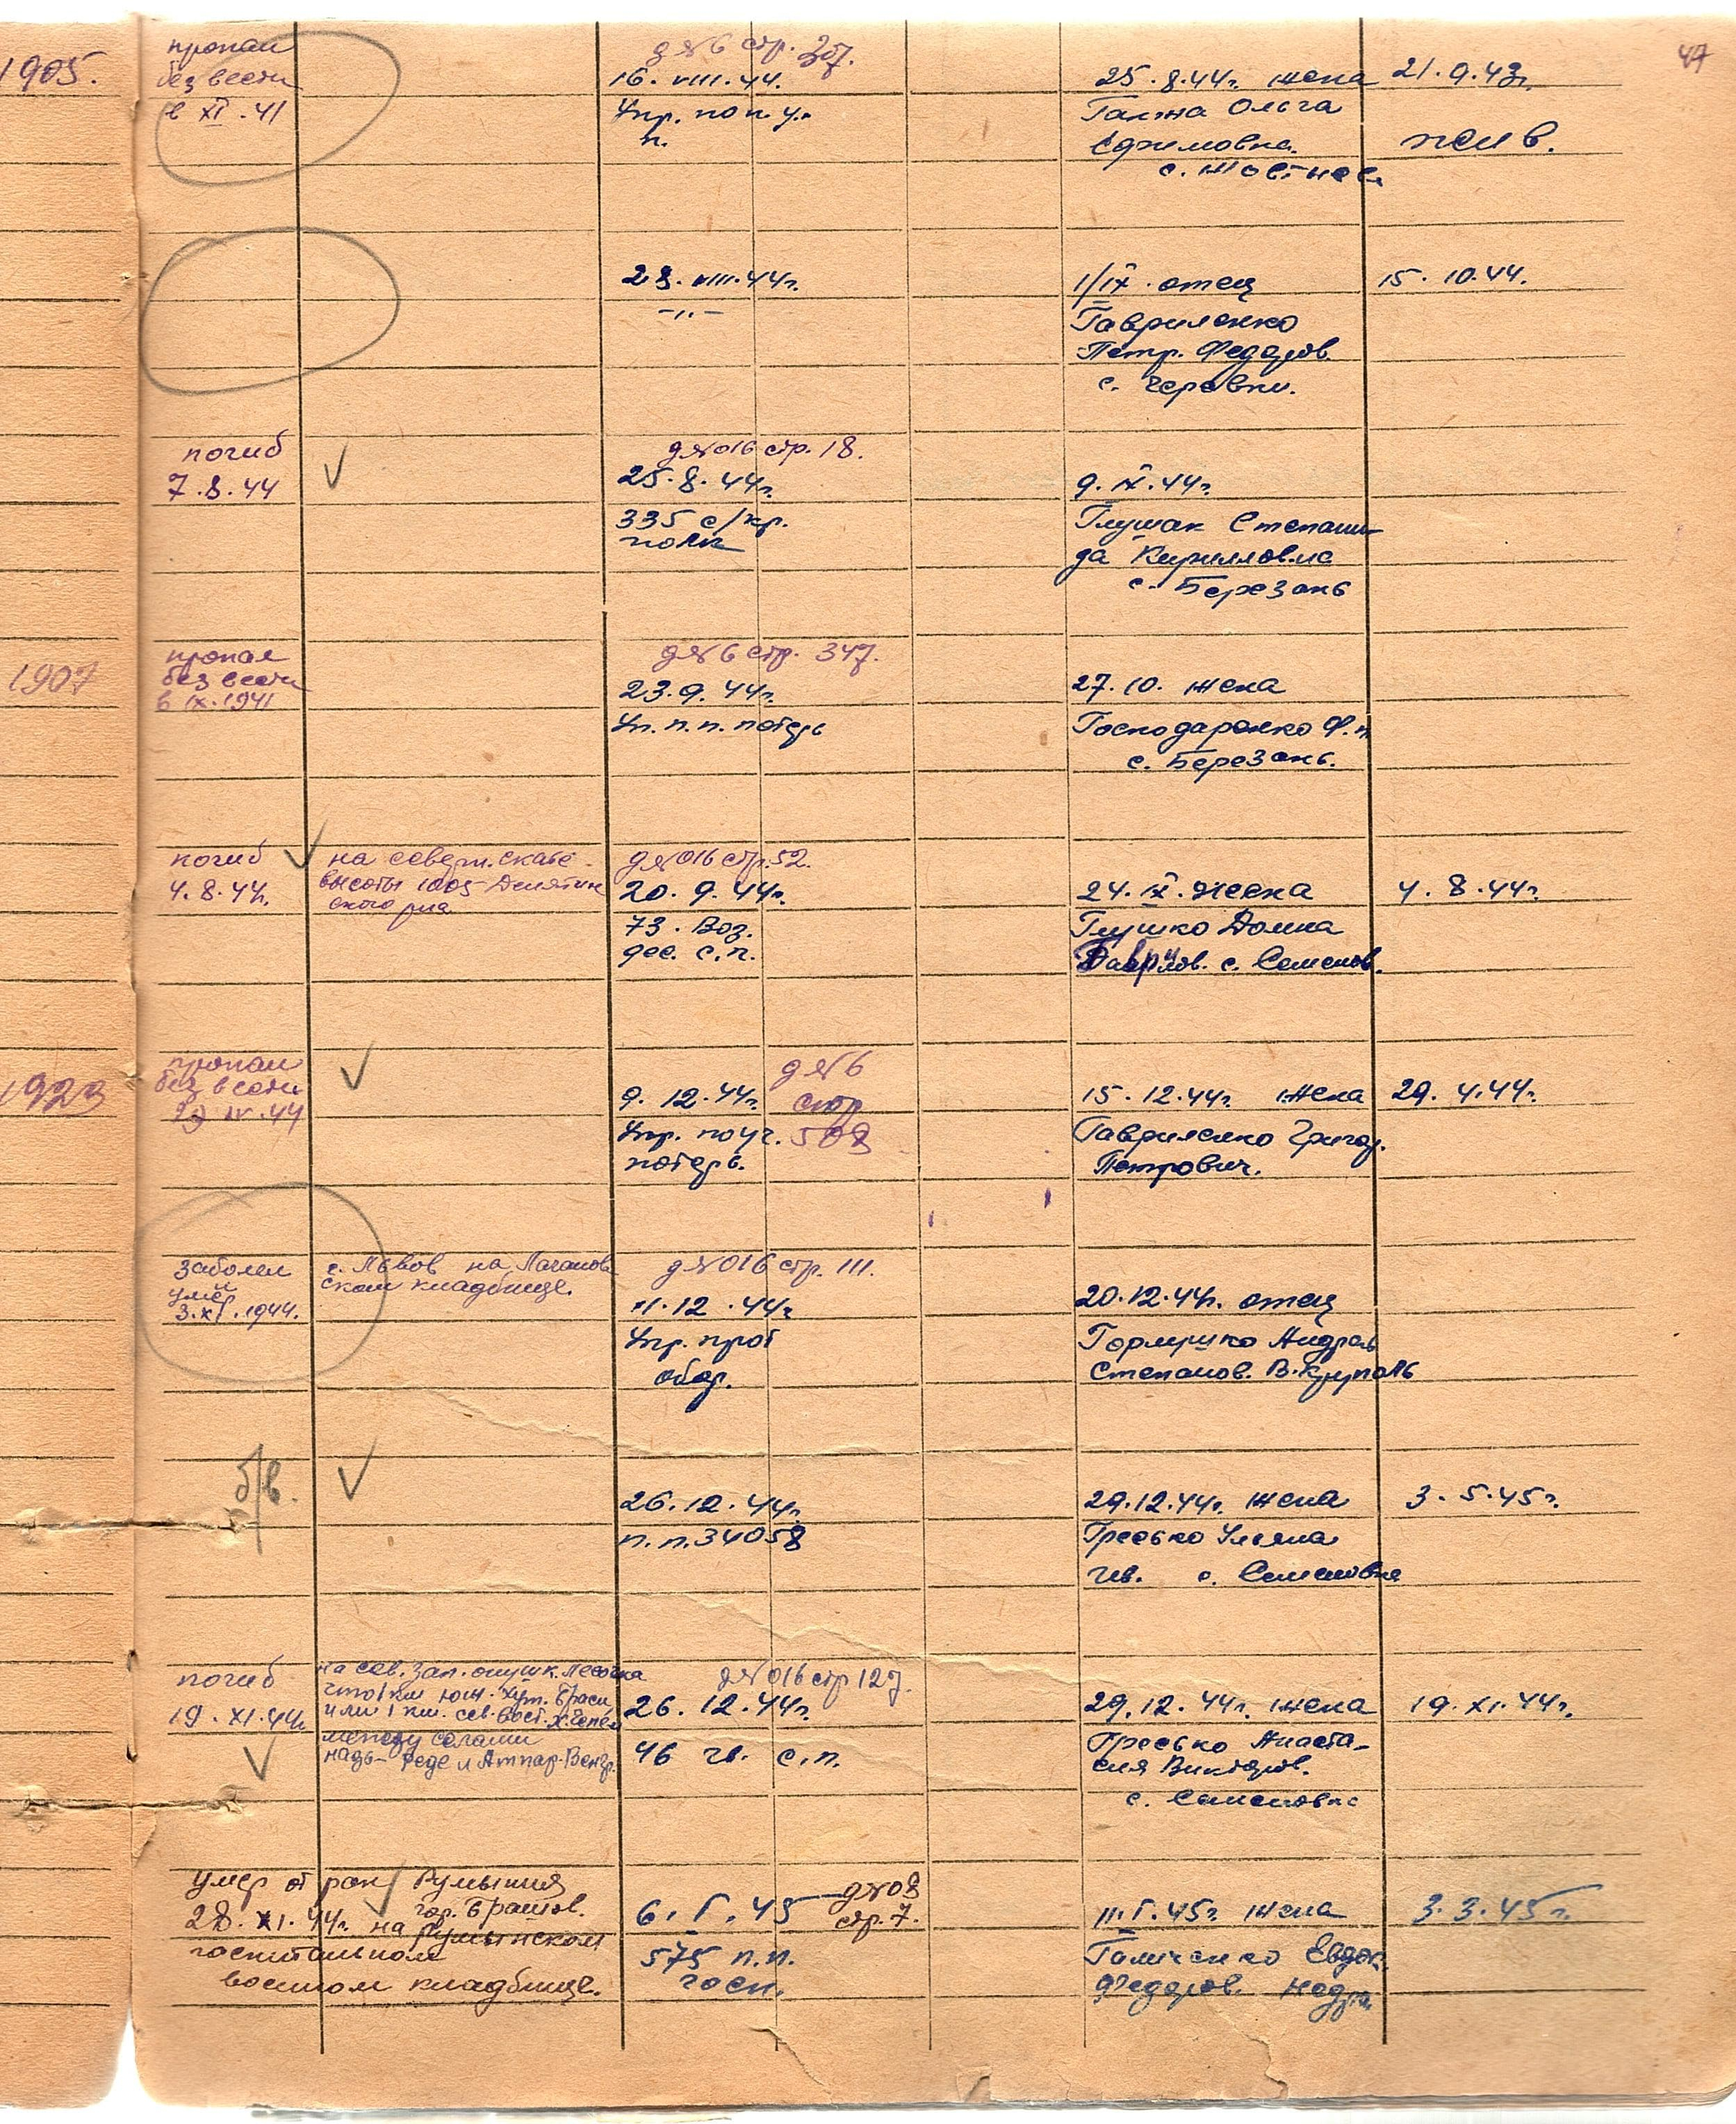 47
1905.
пропал
без вести
в XI.41
д № 6 стр. 307.
16. VIII.44.
Упр. по п. у.
п.
25.8.44г. жена
Ольга
Ефимовна.
21.9.43г.
жив.
28. VIII.44г.
-"-
1/IX. отец
Гавриленко
Петр. Федоров.
с. Черевки.
15. 10.44.
погиб
7.8.44
д № 016 стр. 18.
25.8.44г.
335 с/кр.
полк
9. IX.44г.
Глушак Степани-
да Кирилловна
с. Березань
1907
пропал
без вести
в IX.1941
д № 6 стр. 347.
23.9.44г.
Уп. п. п. потерь
27.10. жена
Господаренко Ф.П.
с. Березань.
погиб
4.8.44г.
на северн. скате
высоты 1005 Делятин
ского р-на
д № 016 стр. 52.
20.9.44г.
73. Воз.
дес. с.п.
24. IX. жена
Глушко Домна
Гаврилов. с. Семенов.
4.8.44г.
1923
пропал
без вести
IV.44
д № 6
стр
508
9.12.44г.
Упр. по уч.
потерь.
15.12.44г. жена
Гавриленко Григор.
Петрович.
29. 4.44г.
заболел
и
умер
3.XI.1944.
г. Львов на
ском кладбище.
д № 016 стр. 111.
11.12.44г
Упр. прот
обор.
20.12.44г. отец
Андрей
Степанов. В.Крупол
б/в.
26.12.44г.
п.п.34058
29.12.44г. жена
Гресько Ульяна
Ив. с. Семеновка
3.5.45г.
погиб
19.XI.44г
на сев. зап. опушк. лесочка
что 1 км юж. хут.
или 1 км. сев. вост. х. Чепел
между селами
надь- Реде и Атпар-Венгр.
д № 016 стр 127.
26.12.44г.
46 гв. с.п.
29.12.44г. жена
Гресько Анаста-
сия Викторов.
с. Семеновка
19.XI.44г.
умер от ран Румыния
гор. Брашов.
28. XI.44г. на Румынском
госпитальном
военном кладбище.
д № 08
стр. 7.
6. I. 45
575 п.п.
госп.
11.I.45г. жена
Галиченко Евдок.
Федоров. Недра
3.3.45г.